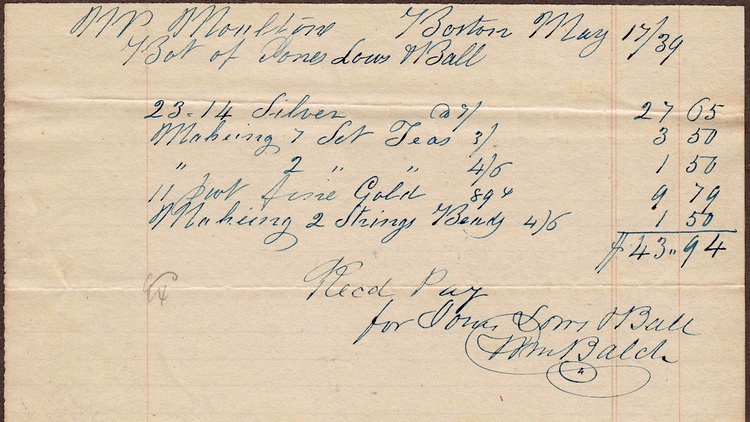 Moulton Boston May 17/39
Bot of Jones Lows & Ball
23-14 Silver @ 7/ 27 65
Makeing 7 Set Teas 3/ 3 50
" 2 " " 4/6 1 50
11 pwt fine Gold 89 9 79
Makeing 2 Strings Beads 4/6 1 50
$43"94
Recd Pay
for Jones Lows & Ball
Wm Balch